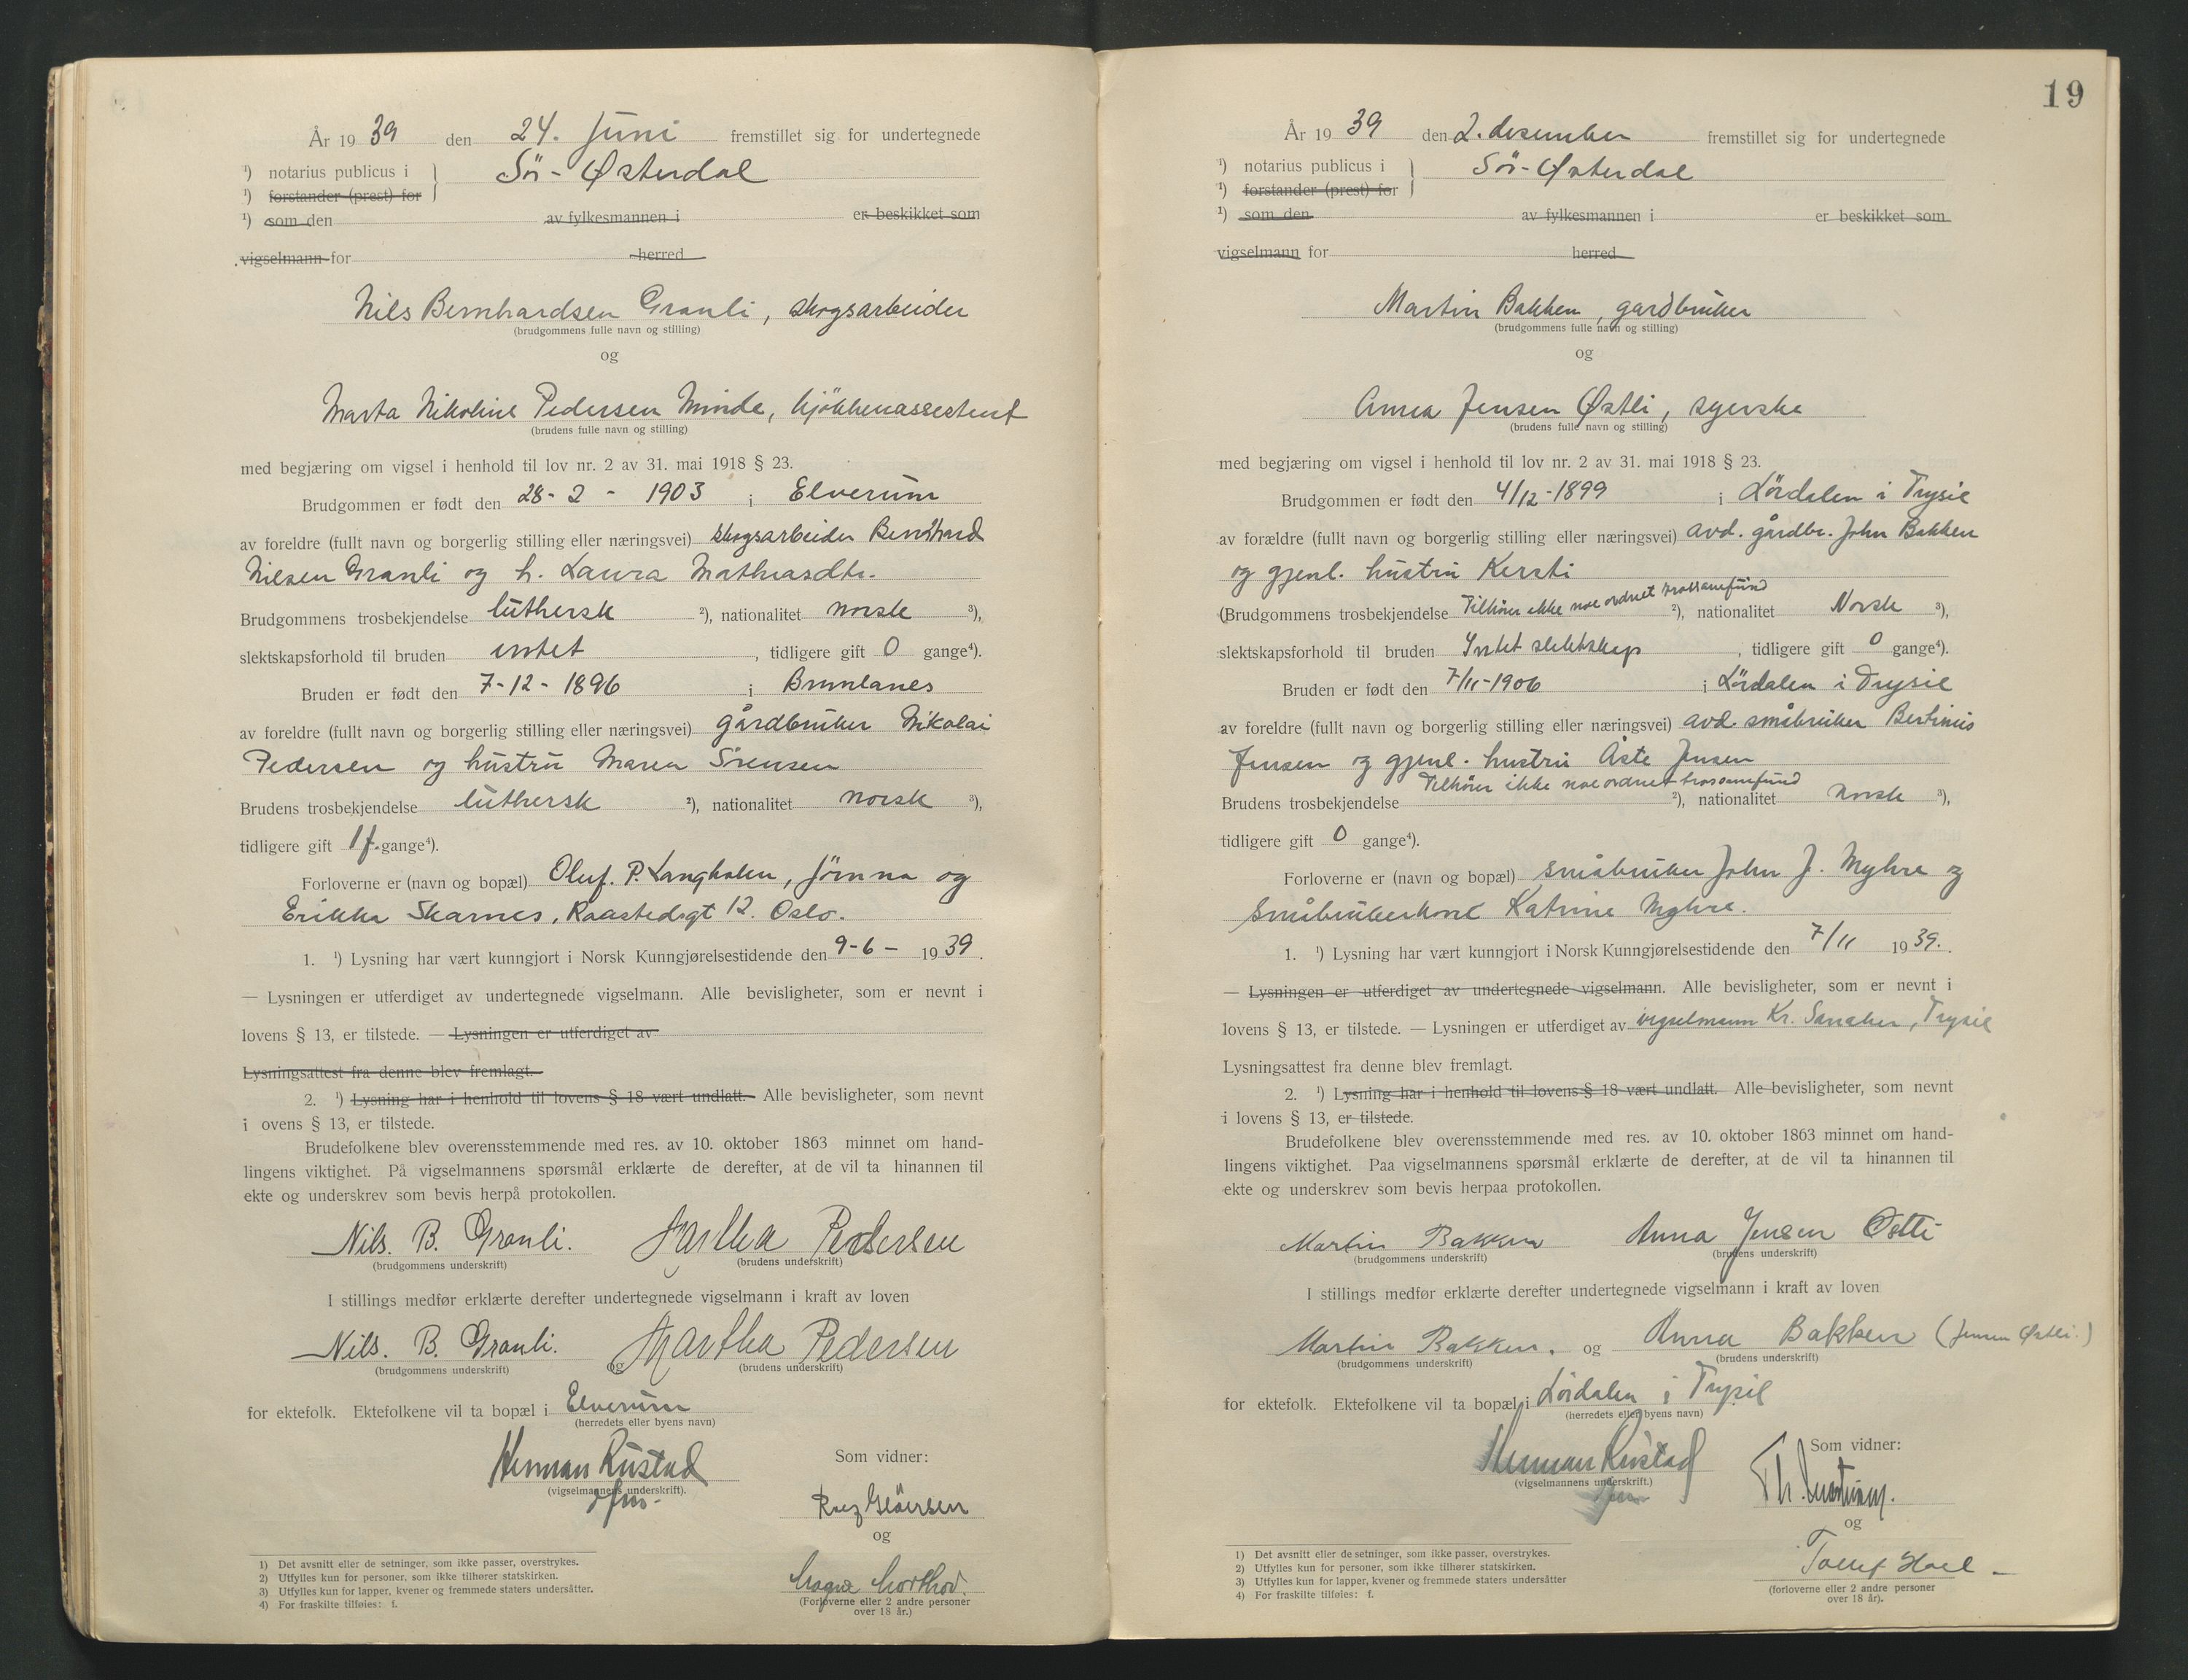 År 1939 den 24. Juni fremstillet sig for undertegnede
¹) notarius publicus i } Sör-Østerdal
¹) forstander (prest) for
¹) som den av fylkesmannen i er beskikket som
vigselmann for herred
Nils Bernhardsen Granli, skogsarbeider
(brudgommens fulle navn og stilling)
og
Marta Nikoline Pedersen Minde, kjökkenassestent
(brudens fulle navn og stilling)
med begjæring om vigsel i henhold til lov nr. 2 av 31. mai 1918 § 23.
Brudgommen er født den 28-2-1903 i Elverum
av foreldre (fullt navn og borgerlig stilling eller næringsvei) skogsarbeider Bernhard
Nilsen Granli og h. Laura Mathiasdtr.
Brudgommens trosbekjendelse luthersk ²), nationalitet norsk ³),
slektskapsforhold til bruden intet, tidligere gift 0 gange⁴).
Bruden er født den 7-12-1896 i Brunlanes
av foreldre (fullt navn og borgerlig stilling eller næringsvei) gårdbruker Nikolai
Pedersen og hustru Maren Sörensen
Brudens trosbekjendelse luthersk ²), nationalitet norsk ³),
tidligere gift 1 f. gange⁴).
Forloverne er (navn og bopæl) Oluf. P. Langholen, Jömna og
Erikka Skarnes, Raastedsgt 12. Oslo.
1. ¹) Lysning har vært kunngjort i Norsk Kunngjørelsestidende den 9-6- 1939.
— Lysningen er utferdiget av undertegnede vigselmann. Alle bevisligheter, som er nevnt i
lovens § 13, er tilstede. — Lysningen er utferdiget av
Lysningsattest fra denne blev fremlagt.
2. ¹) Lysning har i henhold til lovens § 18 vært undlatt. Alle bevisligheter, som nevnt
i ovens § 13, er tilstede.
Brudefolkene blev overensstemmende med res. av 10. oktober 1863 minnet om hand-
lingens viktighet. På vigselmannens spørsmål erklærte de derefter, at de vil ta hinannen til
ekte og underskrev som bevis herpå protokollen.
Nils. B. Granli. Martha Pedersen
(brudgommens underskrift) (brudens underskrift)
I stillings medfør erklærte derefter undertegnede vigselmann i kraft av loven
Nils. B. Granli. og Martha Pedersen
(brudgommens underskrift) (brudens underskrift)
for ektefolk. Ektefolkene vil ta bopæl i Elverum
(herredets eller byens navn)
Herman Rustad Som vidner:
(vigselmannens underskrift).
og
(Forloverne eller 2 andre personer
over 18 år.)
1) Det avsnitt eller de setninger, som ikke passer, overstrykes.
2) Utfylles kun for personer, som ikke tilhører statskirken.
3) Utfylles kun for lapper, kvener og fremmede staters undersåtter.
4) For fraskilte tilføies: f.
19
År 1939 den 2. desember fremstillet sig for undertegnede
¹) notarius publicus i } Sör-Østerdal
¹) forstander (prest) for
¹) som den av fylkesmannen i er beskikket som
vigselmann for herred
Martin Bakken, gardbruker
(brudgommens fulle navn og stilling)
og
Anna Jensen Østli, syerske
(brudens fulle navn og stilling)
med begjæring om vigsel i henhold til lov nr. 2 av 31. mai 1918 § 23.
Brudgommen er født den 4/12-1899 i Lördalen i Trysil
av forældre (fullt navn og borgerlig stilling eller næringsvei) avd. gårdbr. John Bakken
og gjenl. hustru Kersti
(Brudgommens trosbekjendelse Tilhörer ikke noe ordnet trossamfund ²), nationalitet Norsk ³),
slektskapsforhold til bruden Intet slektskap, tidligere gift 0 gange⁴).
Bruden er født den 7/11-1906 i Lördalen i Trysil
av foreldre (fullt navn og borgerlig stilling eller næringsvei) avd. småbruker Bertinius
Jensen og gjenl. hustru Åste Jensen
Brudens trosbekjendelse Tilhörer ikke noe ordnet trossamfund ²), nationalitet norsk ³),
tidligere gift 0 gange⁴).
Forloverne er (navn og bopæl) småbruker John J. Myhre og
Småbrukerkone Katrine Myhre.
1. ¹) Lysning har vært kunngjort i Norsk Kunngjørelsestidende den 7/11 1939.
— Lysningen er utferdiget av undertegnede vigselmann. Alle bevisligheter, som er nevnt i
lovens § 13, er tilstede. — Lysningen er utferdiget av vigselmann Kr. Trysil
Lysningsattest fra denne blev fremlagt.
2. ¹) Lysning har i henhold til lovens § 18 vært undlatt. Alle bevisligheter, som nevnt
i lovens § 13, er tilstede.
Brudefolkene blev overensstemmende med res. av 10. oktober 1863 minnet om hand-
lingens viktighet. Paa vigselmannens spørsmål erklærte de derefter, at de vil ta hinannen til
ekte og underskrev som bevis herpaa protokollen.
Martin Bakken Anna Jensen Østli
(brudgommens underskrift) (brudens underskrift)
I stillings medfør erklærte derefter undertegnede vigselmann i kraft av loven
Martin Bakken. og Anna Bakken (Jensen Østli.)
(brudgommens underskrift) (brudens underskrift)
for ektefolk. Ektefolkene vil ta bopæl i Lördalen i Trysil
(herredets eller byens navn)
Herman Rustad Som vidner:
(vigselmannens underskrift.)
Th.
og
(forloverne eller 2 andre personer
over 18 år).
1) Det avsnitt eller de setninger, som ikke passer, overstrykes.
2) Utfylles kun for personer, som ikke tilhører statskirken.
3) Utfylles kun for lapper, kvener og fremmede staters undersåtter
4) For fraskilte tilføies: f.